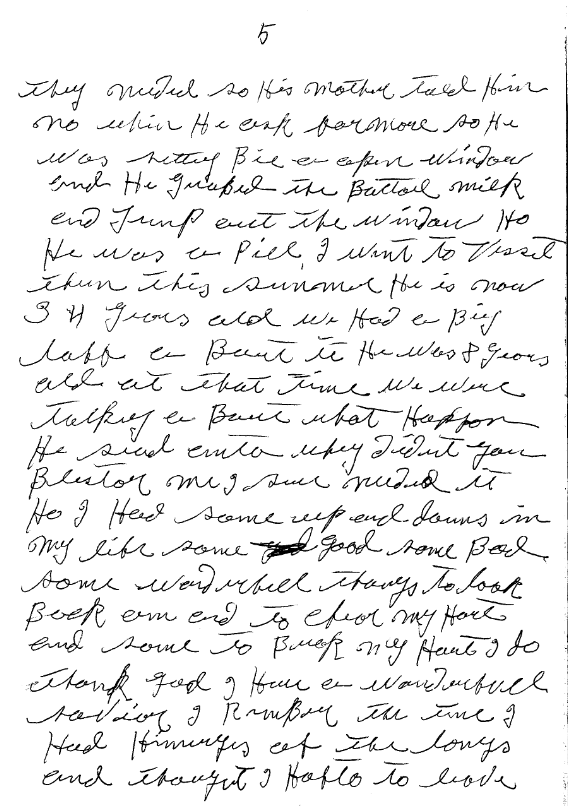 5
they nuded so His mother told Him
no whin He ask for more so He
was sitting Bie a open window
and He Grabed the Battol milk
and Jump out the window Ho
He was a Pill, I wint to Vissit
them this summer He is now
34 Years old we Had a Big
laff a Baut it He was 8 Years
old at that time we were
talking a Baut what Happon
He siad why didint you
Blestor me I sure nuded it
Ho I Had some up and douns in
my life some good some Bad
some wonderfull things to look
Back on and to chear my Hart
and some to Break my Hart I do
thank god I Have a wonderfull
saviour I the time I
Had at the longs
and thought I to leave